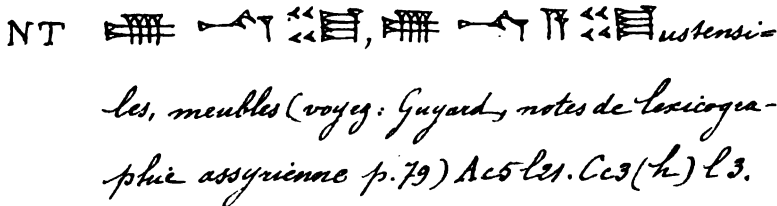 NT , ustensi=
les, meubles (voyez: Guyard, notes de lexicogra-
phie assyrienne p.79) Ac5 l21. Cc3(h) l3.